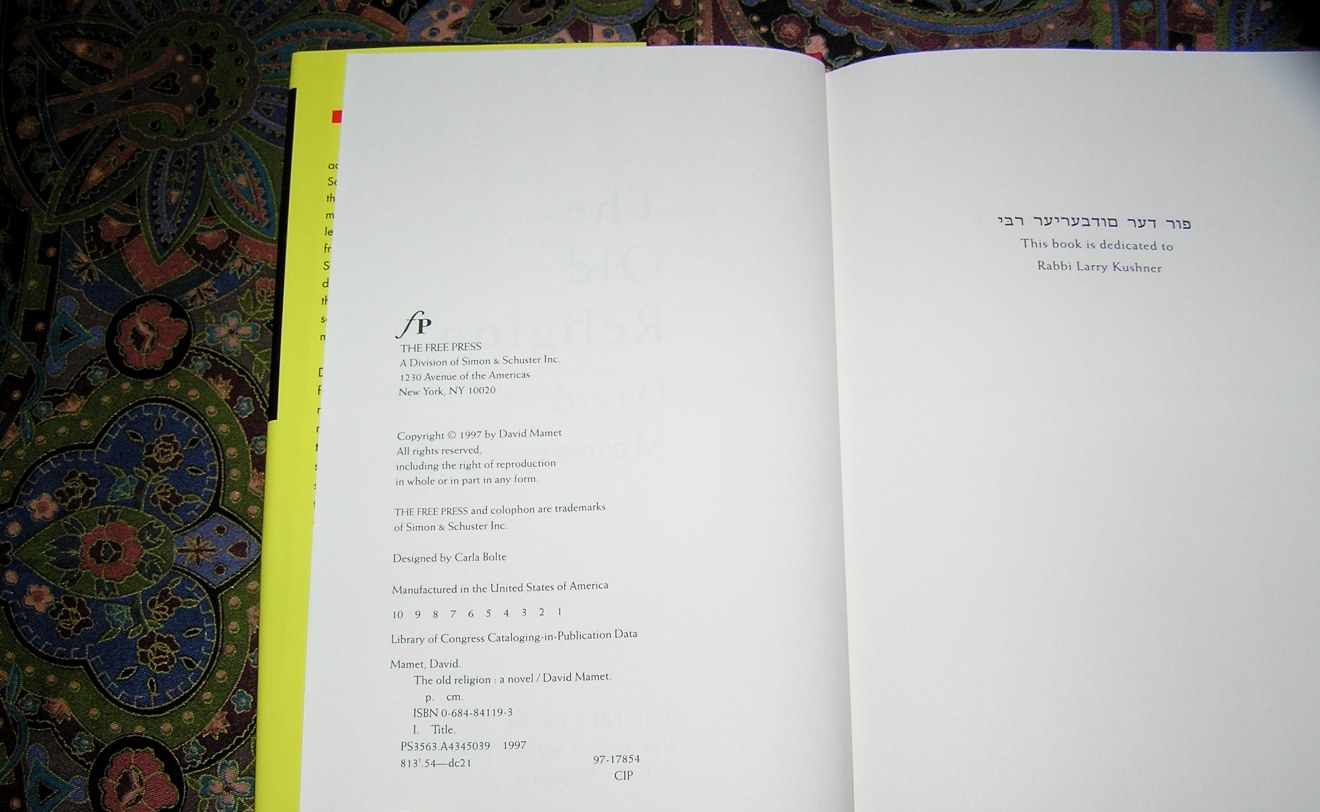 fP
THE FREE PRESS
A Division of Simon & Schuster Inc.
1230 Avenue of the Americas
New York, NY 10020
Copyright © 1997 by David Mamet
All rights reserved,
including the right of reproduction
in whole or in part in any form.
THE FREE PRESS and colophon are trademarks
of Simon & Schuster Inc.
Designed by Carla Bolte
Manufactured in the United States of America
10 9 8 7 6 5 4 3 2 1
Library of Congress Cataloging-in-Publication Data
Mamet, David.
The old religion : a novel / David Mamet.
p. cm.
ISBN 0-684-84119-3
I. Title.
PS3563.A4345039 1997
813'.54—dc21 97-17854
CIP
פור דער סודבעריער רבּי
This book is dedicated to
Rabbi Larry Kushner